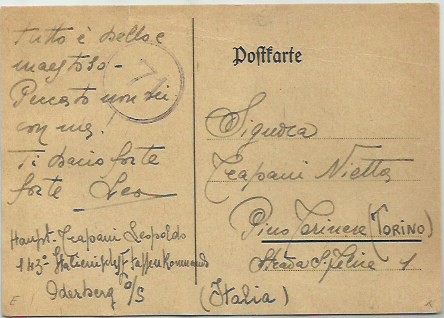 Tutto è bello e
maestoso -
Peccato non sii
con me.
Ti bacio forte
forte Leo
Haupt. Trapani Leopoldo
143° Italienische
Oderberg O/S
71
Postkarte
Signora
Trapani Nietta
Pino Torinese (TORINO)
Strada S. Felice 1
(Italia)